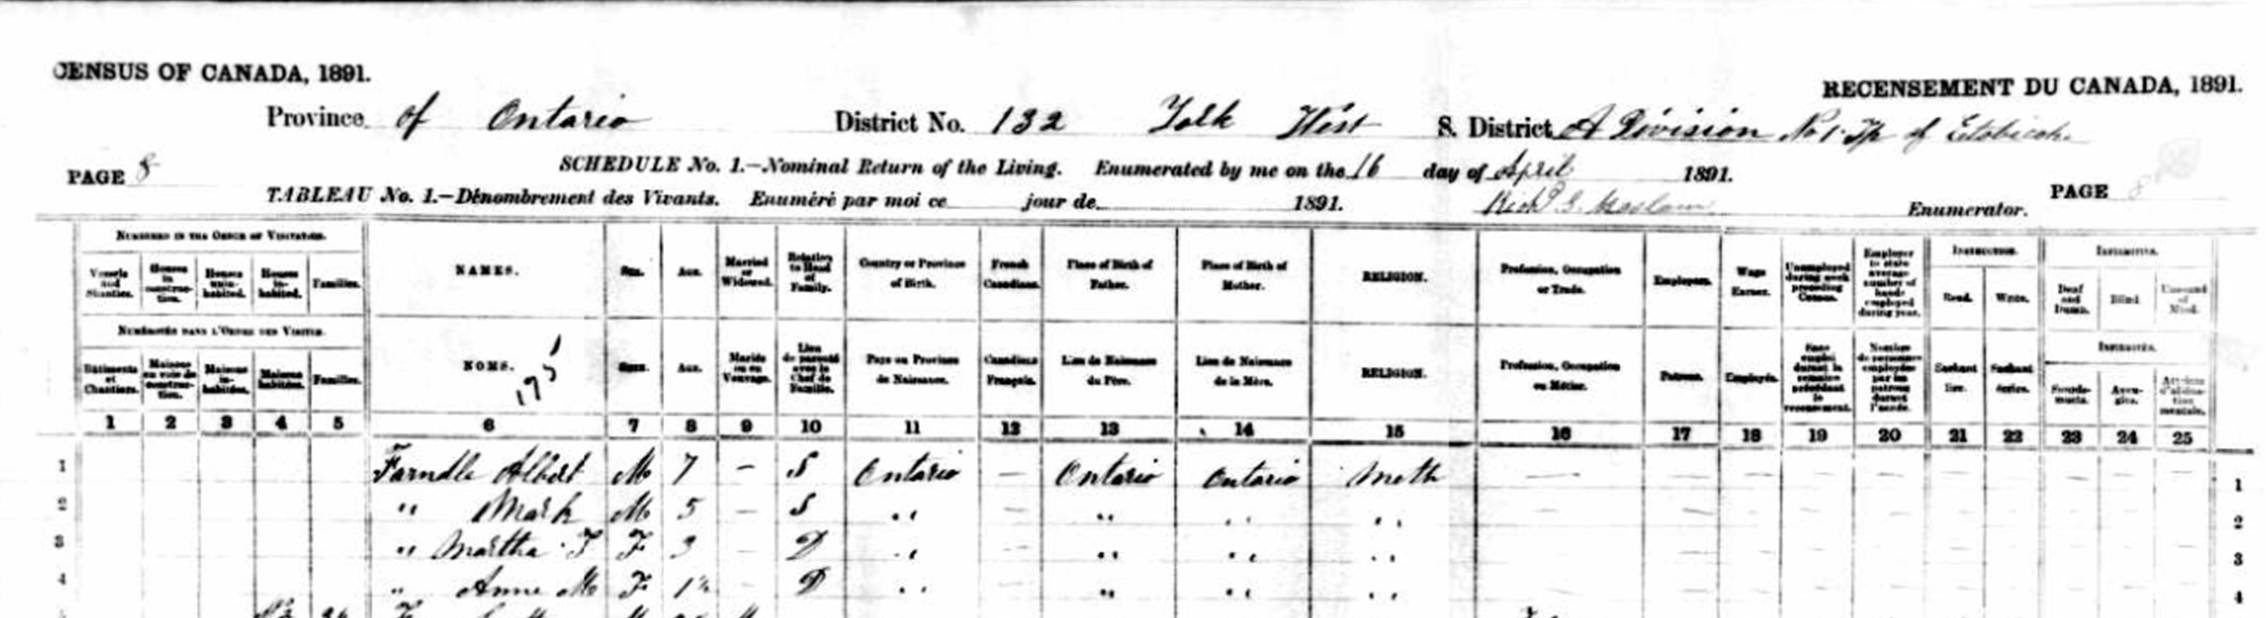 CENSUS OF CANADA, 1891.
RECENSEMENT DU CANADA, 1891.
Province of Ontario District No. 132 York West S. District A Division No 1 Tp of Etobicoke
PAGE 8 SCHEDULE No. 1.—Nominal Return of the Living. Enumerated by me on the 16 day of April 1891.
TABLEAU No. 1.—Dénombrement des Vivants. Enuméré par moi ce jour de 1891. Enumerator. PAGE 8
NUMBERED IN THE ORDER OF VISITATION. INSTRUCTION. INFIRMITIES.
Vessels and Shanties. Houses in construction. Houses uninhabited. Houses inhabited. Families. NAMES. Sex. Age. Married or Widowed. Relation to Head of Family. Country or Province of Birth. French Canadians. Place of Birth of Father. Place of Birth of Mother. RELIGION. Profession, Occupation or Trade. Employers. Wage Earner. Unemployed during week preceding Census. Employer to state average number of hands employed during year. Read. Write. Deaf and Dumb. Blind. Unsound of Mind.
NUMÉROTÉS DANS L'ORDRE DES VISITES. INFIRMITÉS.
Bâtiments et Chantiers. Maisons en voie de construction. Maisons inhabitées. Maisons habitées. Familles. NOMS. 195 Sexe. Age. Mariés ou en Veuvage. Lien de parenté avec le Chef de Famille. Pays ou Province de Naissance. Canadiens Français. Lieu de Naissance du Père. Lieu de Naissance de la Mère. RELIGION. Profession, Occupation ou Métier. Patrons. Employés. Sans emploi durant la semaine précédant le recensement. Nombre de personnes employées par un patron durant l'année. Sachant lire. Sachant écrire. Sourds-muets. Aveugles. Atteints d'aliénation mentale.
1 2 3 4 5 6 7 8 9 10 11 12 13 14 15 16 17 18 19 20 21 22 23 24 25
1 Farndle Albert M 7 – S Ontario – Ontario Ontario Meth – – – – – – – – – – 1
2 " Mark M 5 – S " – " " " 2
3 " Martha F F 3 – D " – " " " 3
4 " Anne M F D " – " " " 4